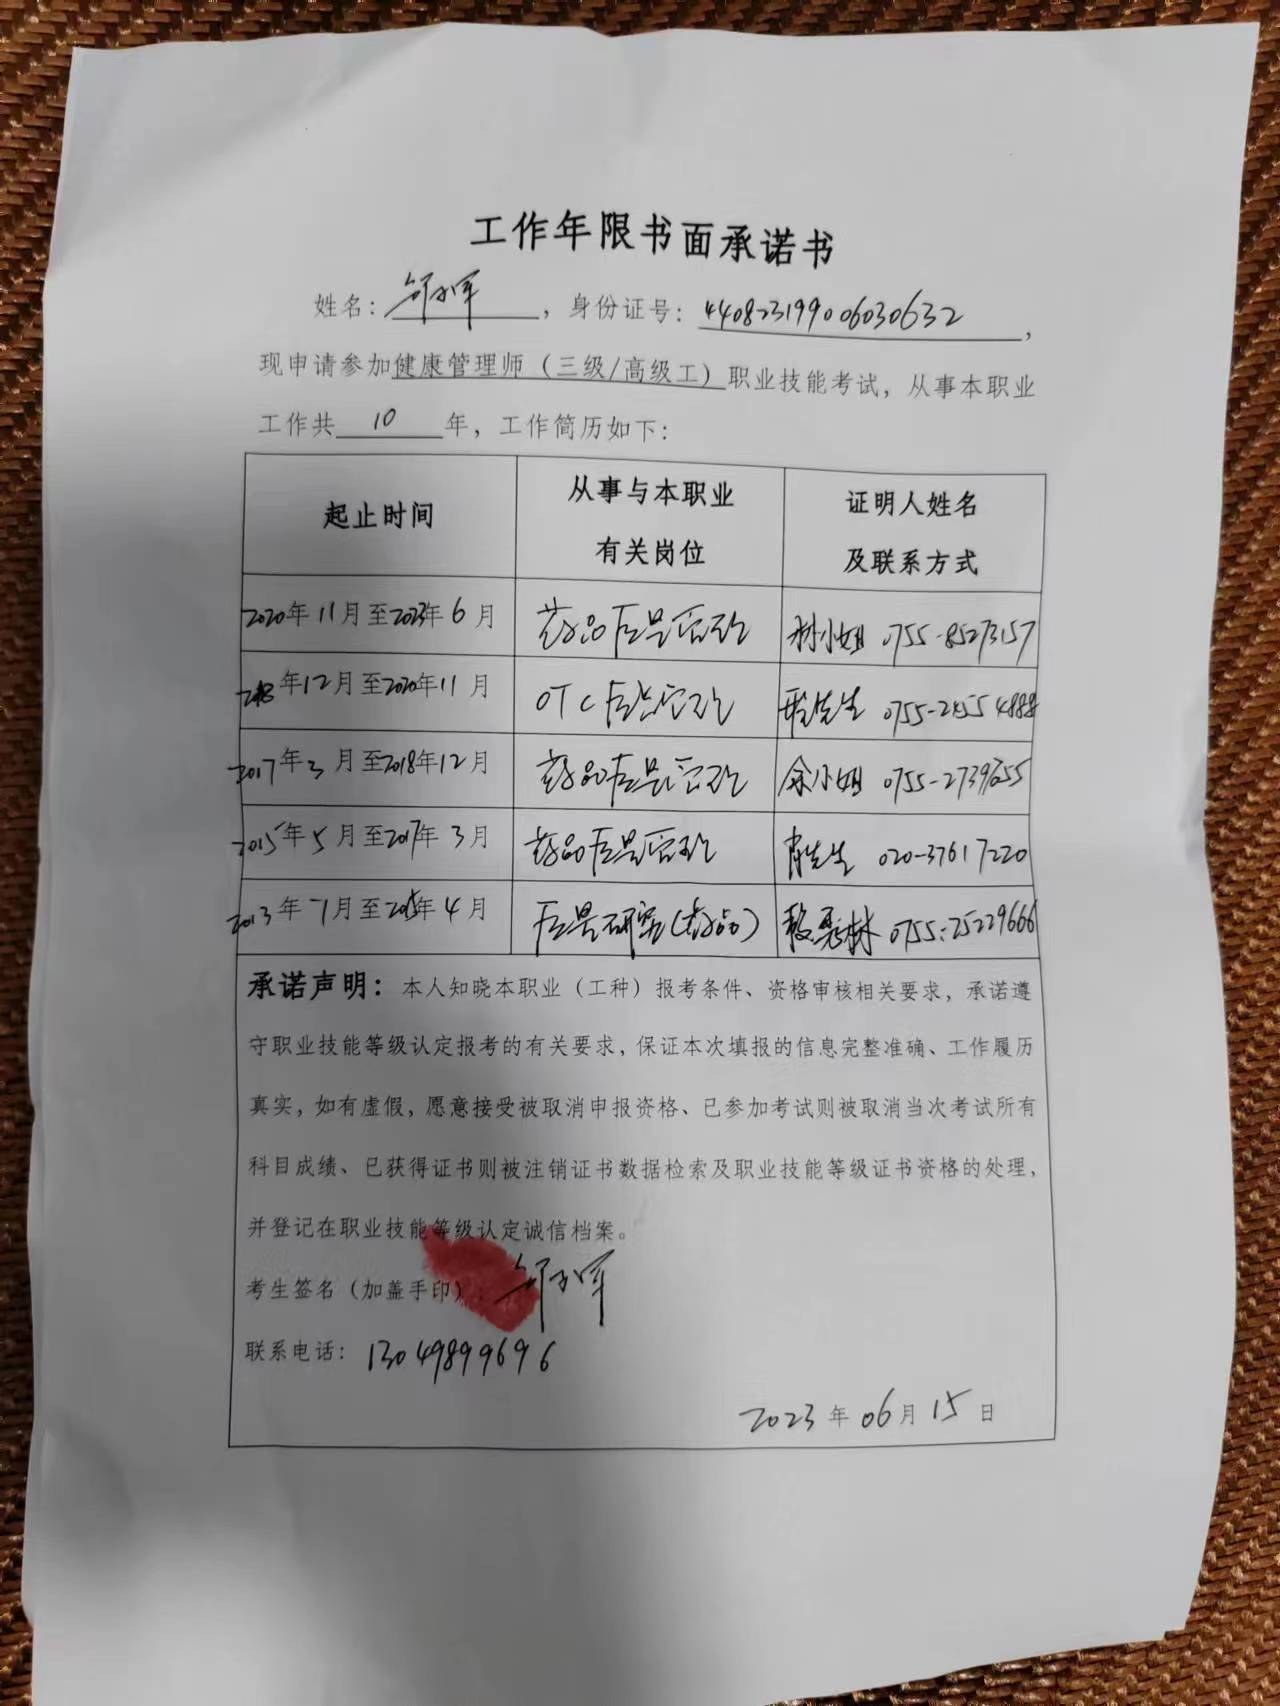 工作年限书面承诺书
姓名：，身份证号：440823199006030632，
现申请参加健康管理师（三级/高级工）职业技能考试，从事本职业
工作共10年，工作简历如下：
起止时间
从事与本职业
有关岗位
证明人姓名
及联系方式
2020年11月至2023年6月
药品质量管理
小姐 0755-85273157
2018年12月至2020年11月
OTC质量管理
先生 0755-24554888
2017年3月至2018年12月
药品质量管理
余小姐
2015年5月至2017年3月
药品质量管理
肖先生 020-37617220
2013年7月至2015年4月
质量研究(药品)
林 0755-25229666
承诺声明：本人知晓本职业（工种）报考条件、资格审核相关要求，承诺遵
守职业技能等级认定报考的有关要求，保证本次填报的信息完整准确、工作履历
真实，如有虚假，愿意接受被取消申报资格、已参加考试则被取消当次考试所有
科目成绩、已获得证书则被注销证书数据检索及职业技能等级证书资格的处理，
并登记在职业技能等级认定诚信档案。
考生签名（加盖手印）：
联系电话：13049899696
2023年06月15日